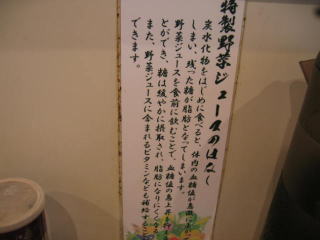 特製野菜ジュースのはなし
炭水化物をはじめに食べると、体内の血糖値が急激に上
しまい、残った糖が脂肪となってしまいます。
野菜ジュースを食前に飲むことで、血糖値の急上昇を抑
とができ、糖は緩やかに摂取され、脂肪になりにくくな
また、野菜ジュースに含まれるビタミンなども補給するこ
できます。